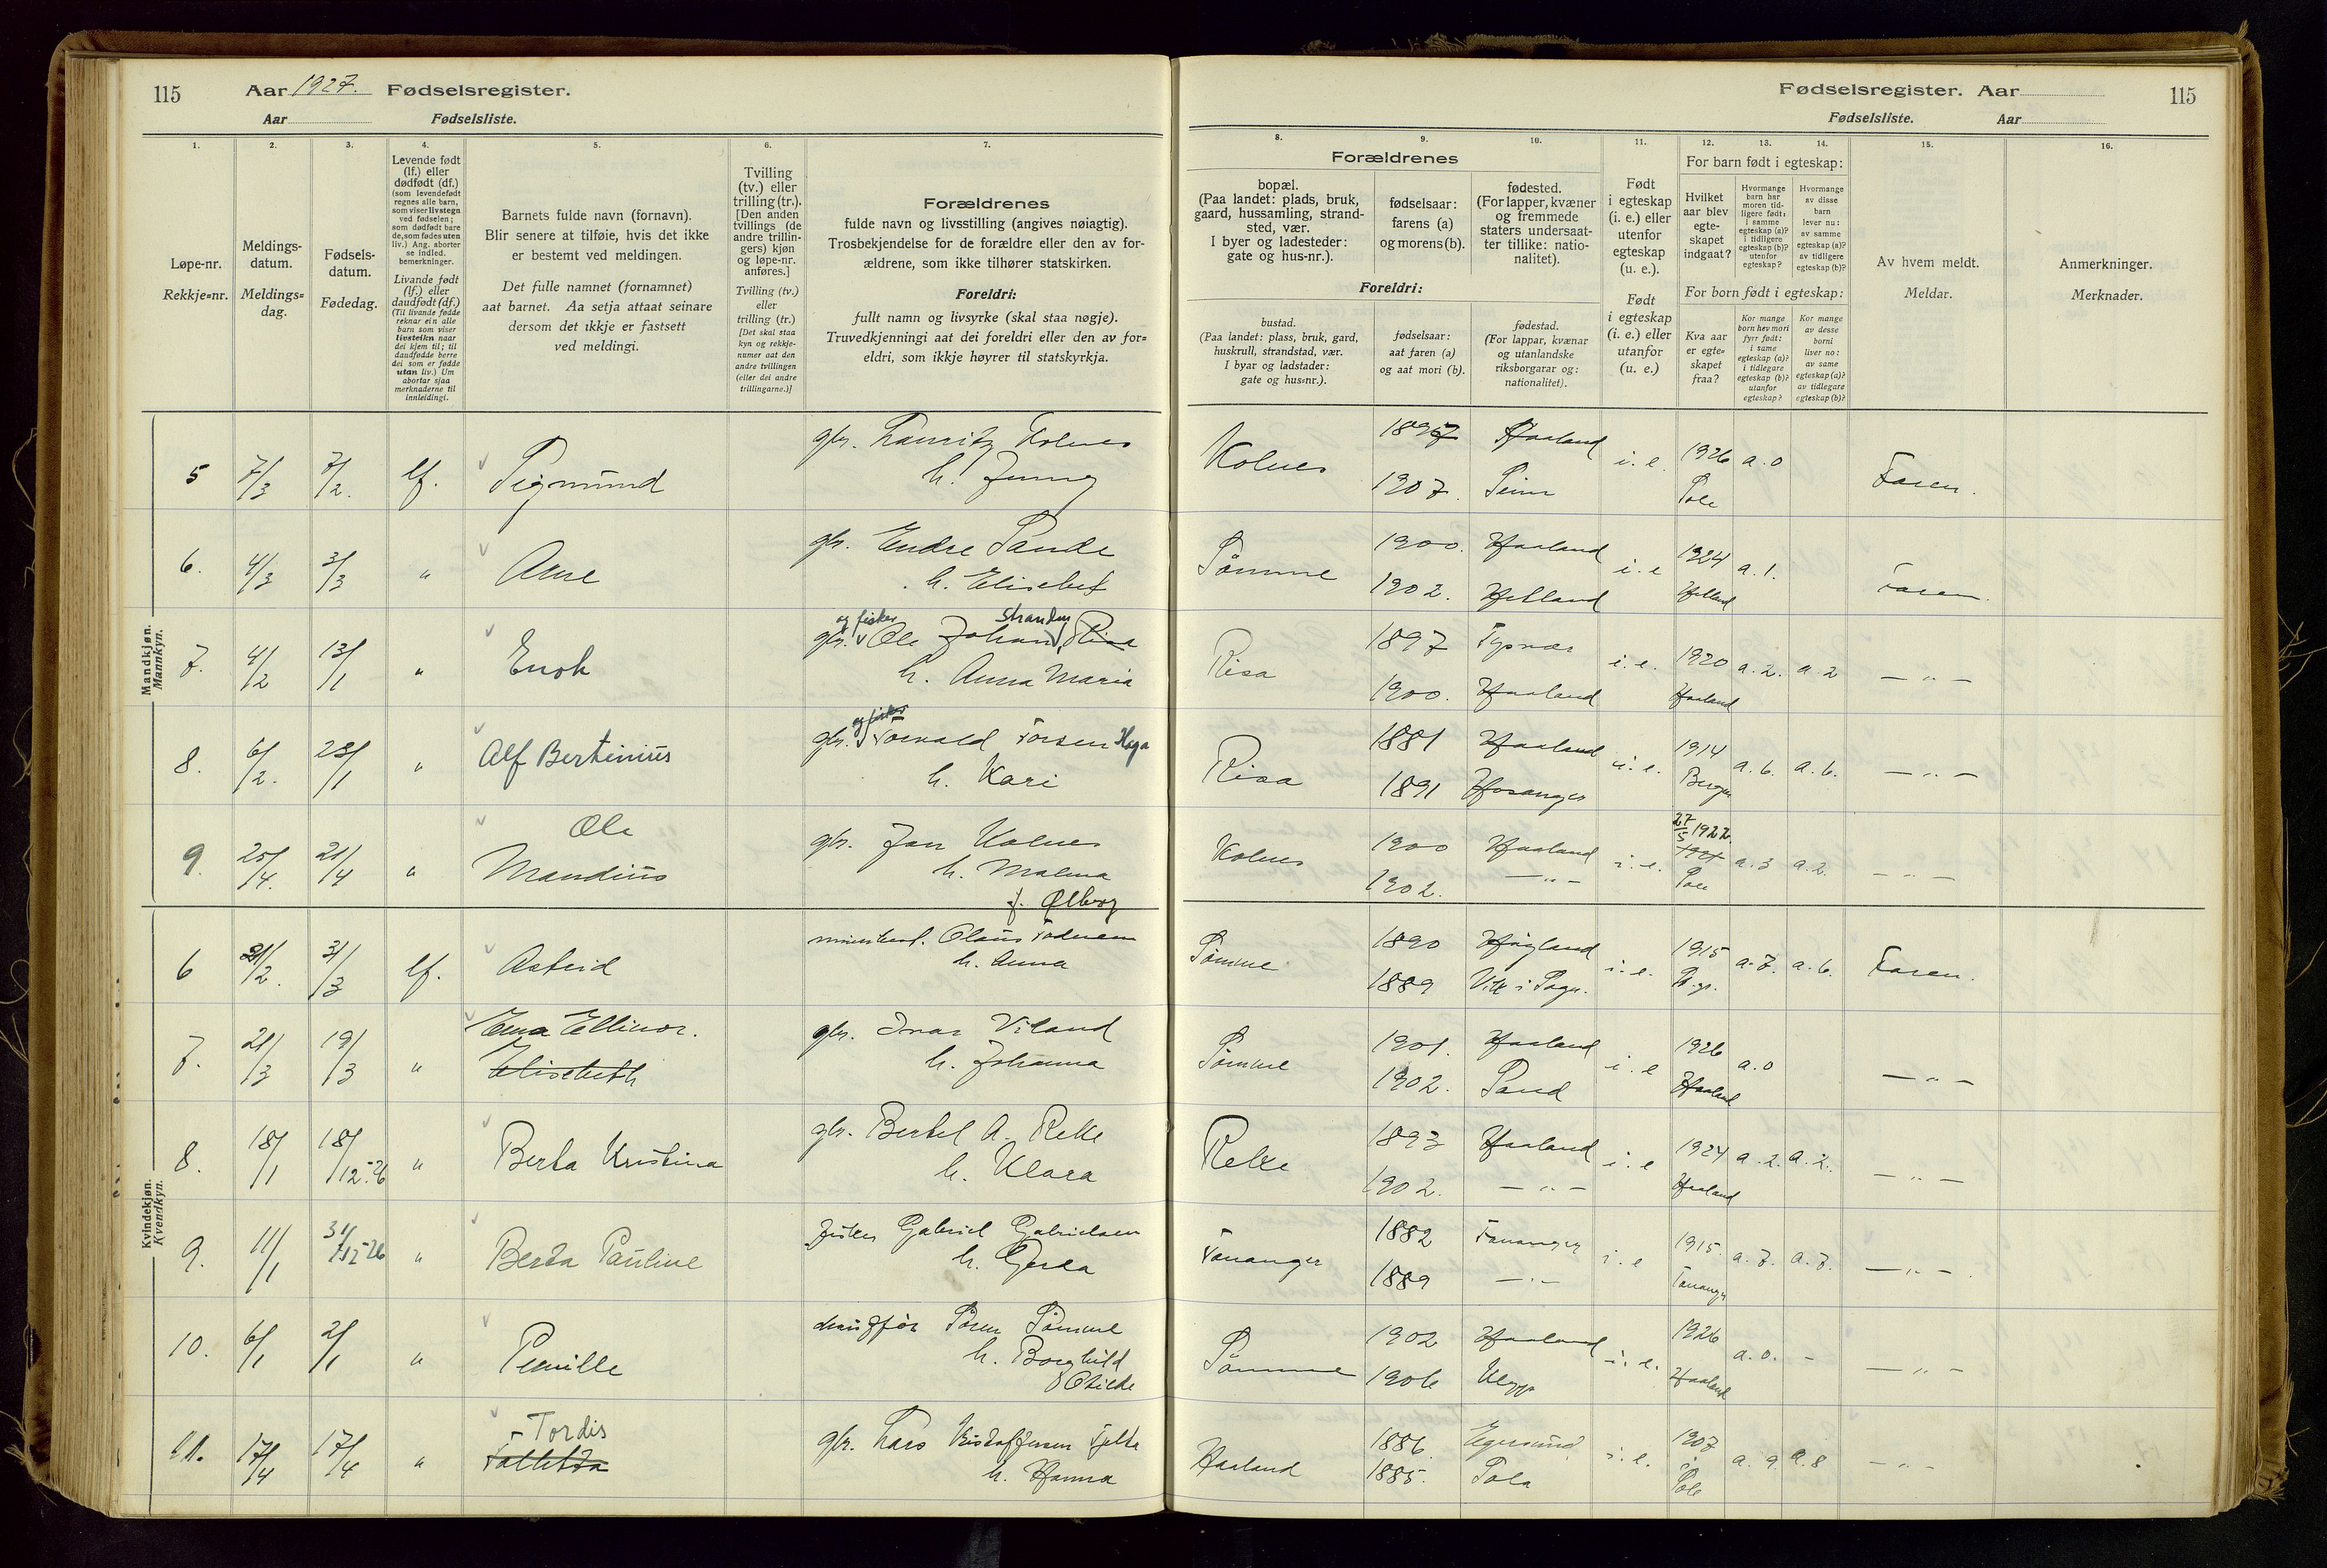 115 Aar 1927. Fødselsregister.
Aar Fødselsliste.
1.
2.
3.
4.
5.
6.
7.
Løpe-nr.
Rekkje=nr.
Meldings-
datum.
Meldings=
dag.
Fødsels-
datum.
Fødedag.
Levende født
(lf.) eller
dødfødt (df.)
(som levendefødt
regnes alle barn,
som viser livstegn
ved fødselen;
som dødfødt bare
de, som fødes uten
liv.) Ang. aborter
se indled.
bemerkninger.
Livande født
(lf.) eller
daudfødt (df.)
(Til livande fødde
reknar ein alle
barn som viser
livsteikn naar
dei kjem til; til
daudfødde berre
dei som er fødde
utan liv.) Um
abortar sjaa
merknaderne til
innleidingi.
Barnets fulde navn (fornavn).
Blir senere at tilføie, hvis det ikke
er bestemt ved meldingen.
Det fulle namnet (fornamnet)
aat barnet. Aa setja attaat seinare
dersom det ikkje er fastsett
ved meldingi.
Tvilling
(tv.) eller
trilling (tr.).
[Den anden
tvillings (de
andre trillin-
gers) kjøn
og løpe-nr.
anføres.]
Tvilling (tv.)
eller
trilling (tr.)
[Det skal staa
kyn og rekkje-
numer aat den
andre tvillingen
(eller dei andre
trillingarne.)]
Forældrenes
fulde navn og livsstilling (angives nøiagtig).
Trosbekjendelse for de forældre eller den av for-
ældrene, som ikke tilhører statskirken.
Foreldri:
fullt namn og livsyrke (skal staa nøgje).
Truvedkjenningi aat dei foreldri eller den av for=
eldri, som ikkje høyrer til statskyrkja.
Mandkjøn.
Mannkyn.
5 7/3 7/2. lf. Sigmund gbr. Lauritz Kolnes
h. Jenny
6. 4/3 3/3 " Arne gbr. Endre Sande
h. Elisebet
7. 4/2 13/1 " Enok gbr. og fisker Ole Johan Risa
h. Anna Maria
8. 6/2. 23/1 " Alf Bertinius gbr. og fisker Torvald Torsen Haga
h. Kari
9. 25/4. 21/4 " Ole
Mandius gbr. Jan Kolnes
h. Malena
f. Ølberg
Kvindekjøn.
Kvendkyn.
6 21/2. 3/3 lf. Astrid Olaus
h. Anna
7. 21/3 19/3 " Erna Ellinor.
Elisebeth gbr. Ivar Viland
h. Johanna
8. 18/1 18/12-26 " Berta Kristina gbr. Bertel A. Reke
h. Klara
9. 11/1 31/12-26 " Berta Pauline fisker Gabriel Gabrielsen
h. Gerda
10. 6/1 2/1 " Pernille Sören Sömme
h. Borghild
Otilde
11. 17/4 17/4 " Tordis gbr. Lars Kristoffersen Tjelta
h. Hanna
Fødselsregister. Aar 115
Fødselsliste. Aar
8.
9.
10.
11.
12.
13.
14.
15.
16.
Forældrenes
bopæl.
(Paa landet: plads, bruk,
gaard, hussamling, strand-
sted, vær.
I byer og ladesteder:
gate og hus-nr.).
fødselsaar:
farens (a)
og morens (b).
fødested.
(For lapper, kvæner
og fremmede
staters undersaat-
ter tillike: natio-
nalitet).
Foreldri:
bustad.
(Paa landet: plass, bruk, gard,
huskrull, strandstad, vær.
I byar og ladstader:
gate og hus=nr.).
fødselsaar:
aat faren (a)
og aat mori (b).
fødestad.
(For lappar, kvænar
og utanlandske
riksborgarar og:
nationalitet).
Født
i egteskap
(i. e.) eller
utenfor
egteskap
(u. e.).
Født
i egteskap
(i. e.) eller
utanfor
(u. e.)
For barn født i egteskap:
Hvilket
aar blev
egte-
skapet
indgaat?
Hvormange
barn har
moren tid-
ligere født:
i samme
egteskap (a)?
i tidligere
egteskap (b)?
utenfor
egteskap?
Hvormange
av disse
barn
lever nu:
av samme
egteskap (a)?
av tidligere
egteskap (b)?
For born født i egteskap:
Kva aar
er egte=
skapet
fraa?
Kor mange
born hev mori
fyrr født:
i same
egteskap (a)?
i tidlegare
egteskap (b)?
utanfor
egteskap?
Kor mange
av desse
borni
liver no:
av same
egteskap (a)?
av tidlegare
egteskap (b)?
Av hvem meldt.
Meldar.
Anmerkninger.
Merknader.
Kolnes Haaland i. e. 1926 a. 0 Faren.
1907. Seim Sole
Sömme 1900. Haaland i. e 1924 a. 1. Faren.
1902. Hetland Hetland
Risa 1897 Tysvær i. e. 1920 a. 2. a. 2 — " —
1900. Haaland Haaland
Risa 1881 Haaland i. e. 1914 a. 6. a. 6. — " —
1891 Hosanger Bergen
Kolnes 1900 Haaland i. e. 27/5 1922 a. 3 a. 2. — " —
1902. — " — Sole
Sömme 1890 Högland i. e. 1915 a. 7. a. 6. Faren.
1889 Vik i Sogn.
Sömme 1901. Haaland i. e 1926 a. 0 — " —
1902. Sand Haaland
Reke 1893 Haaland i. e 1924 a. 2. a. 2. — " —
1902. — " — Haaland
Tananger 1882 Tananger i. e 1915. a. 7. a. 7. — " —
1889 — " — Tananger
Sömme 1902 Haaland i. e. 1926 a. 0. - — " —
1906 Klepp Haaland
Haaland 1886. Egersund i. e. 1907 a. 9 a. 8 — " —
1885. Sola Sole